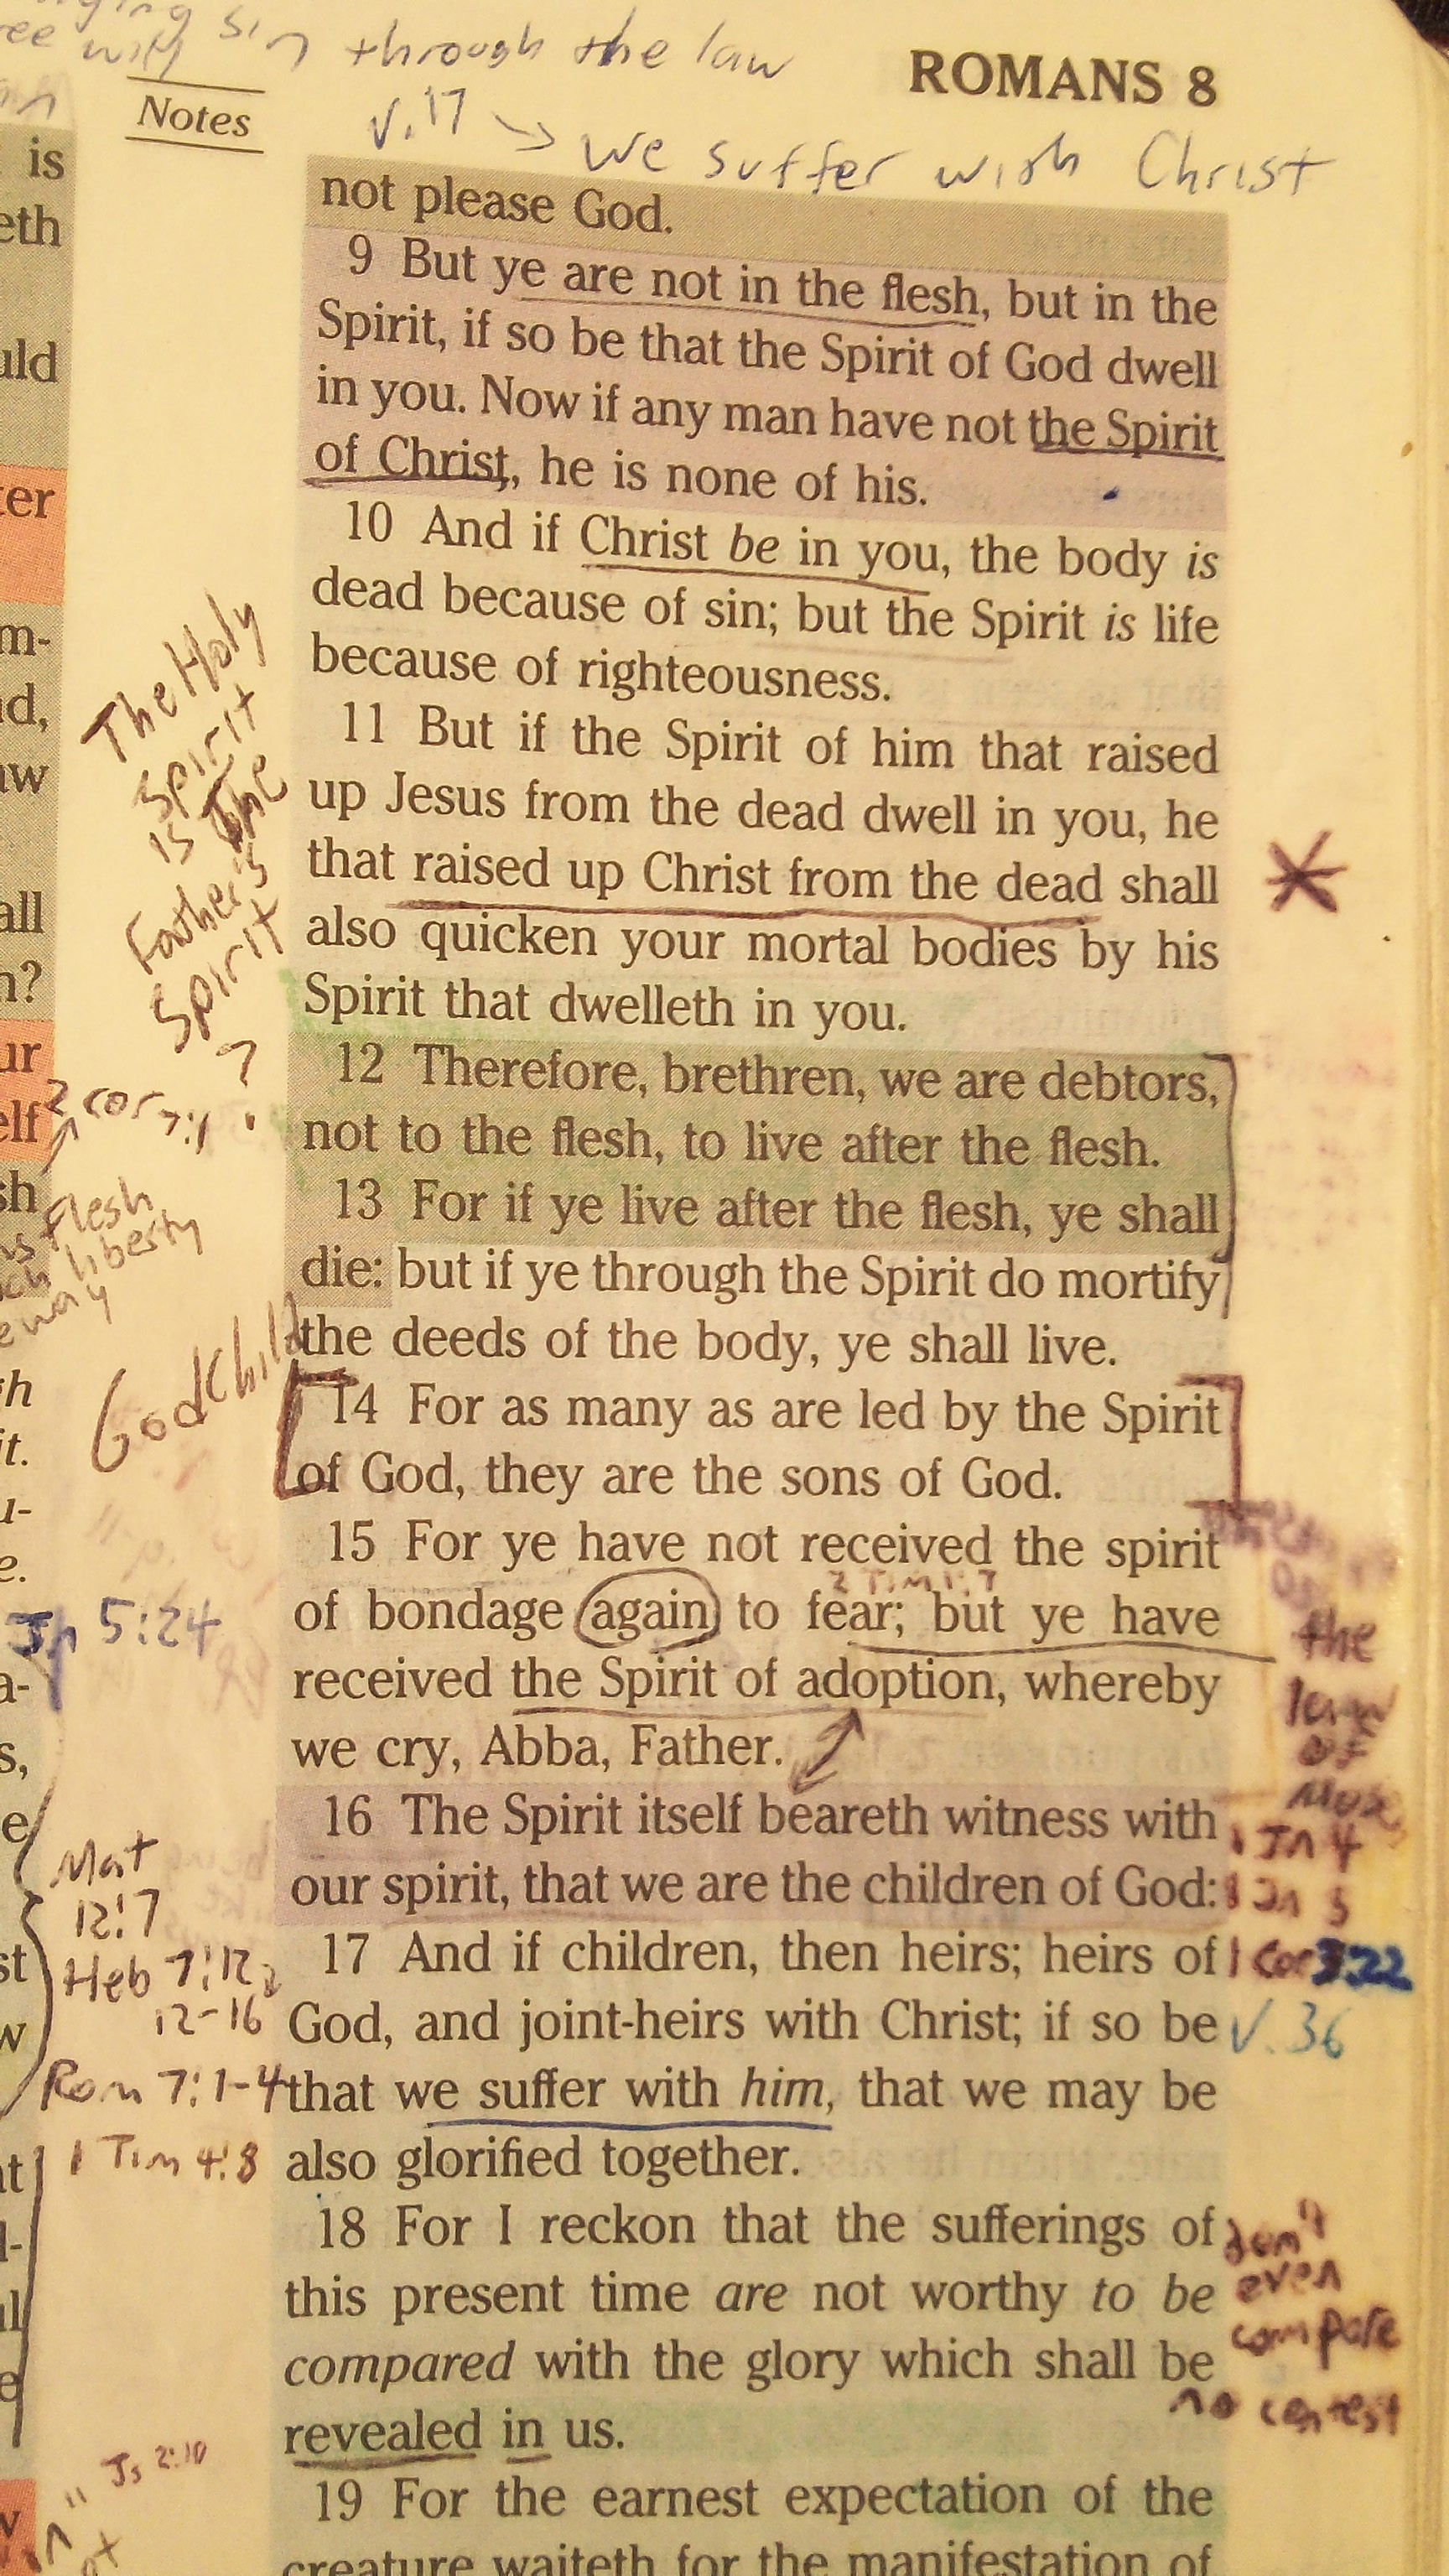 sin through the law
ROMANS 8
Notes
v.17 → we suffer with Christ
not please God.
9 But ye are not in the flesh, but in the
Spirit, if so be that the Spirit of God dwell
in you. Now if any man have not the Spirit
of Christ, he is none of his.
10 And if Christ be in you, the body is
dead because of sin; but the Spirit is life
because of righteousness.
11 But if the Spirit of him that raised
up Jesus from the dead dwell in you, he
that raised up Christ from the dead shall
also quicken your mortal bodies by his
Spirit that dwelleth in you.
12 Therefore, brethren, we are debtors,
not to the flesh, to live after the flesh.
13 For if ye live after the flesh, ye shall
die: but if ye through the Spirit do mortify
the deeds of the body, ye shall live.
14 For as many as are led by the Spirit
of God, they are the sons of God.
15 For ye have not received the spirit
2 Tim 1:7
of bondage again to fear; but ye have
received the Spirit of adoption, whereby
we cry, Abba, Father.
16 The Spirit itself beareth witness with
our spirit, that we are the children of God:
17 And if children, then heirs; heirs of
God, and joint-heirs with Christ; if so be
that we suffer with him, that we may be
also glorified together.
18 For I reckon that the sufferings of
this present time are not worthy to be
compared with the glory which shall be
revealed in us.
19 For the earnest expectation of the
creature waiteth for the manifestation of
The Holy
Spirit
is The
Father's
Spirit
?
2 Cor 7:1
flesh
liberty
God Child
Jn 5:24
Mat
12:7
Heb 7:12,
12-16
Rom 7:1-4
1 Tim 4:8
Js 2:10
the
law
of
1 Jn 4
1 Jn 3
1 Cor 3:22
v. 36
don't
even
compare
no contest
is
eth
uld
ter
m-
d,
aw
all
n?
ur
elf
sh